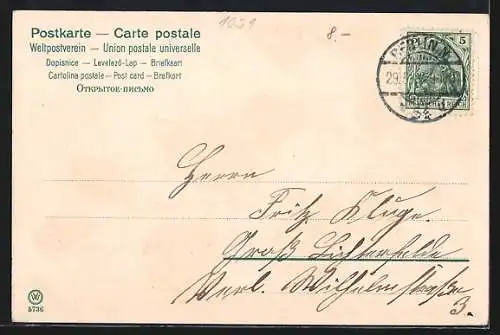 1021
8.-
Postkarte — Carte postale
Weltpostverein — Union postale universelle
Dopisnice — Levelező-Lap — Briefkaart
Cartolina postale — Post card — Brefkort
Открытое-письмо
5
BERLIN N.
29.
DEUTSCHES REICH
54
Herrn
Fritz Kluge.
Groß Lichterfelde
Verl. Wilhelmstraße
3.
W
5736